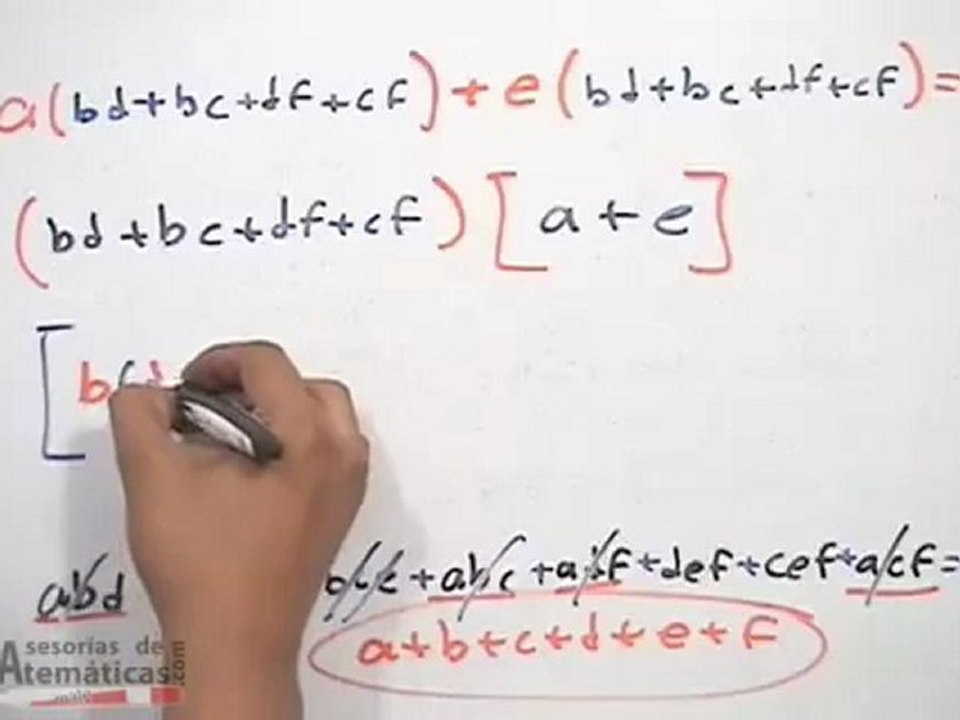 a(bd+bc+df+cf)+e(bd+bc+df+cf)=
(bd+bc+df+cf)[a+e]
[b(d
abd +abc + +def+cef+acf=
a+b+c+d+e+f
Asesorías de
Matemáticas.com